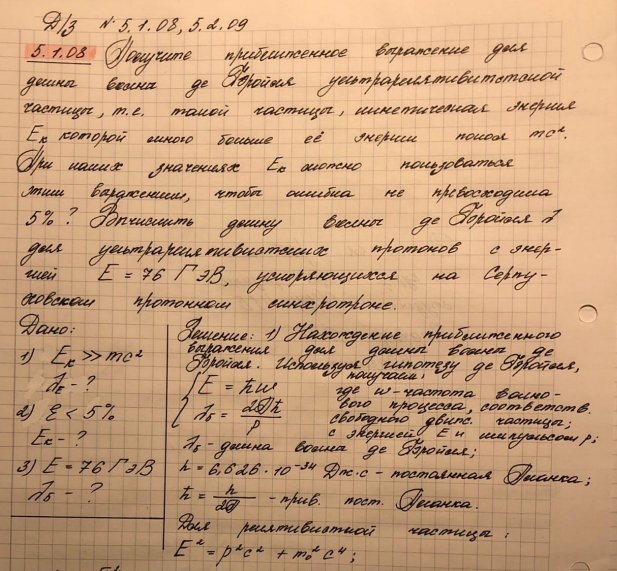 Д/З № 5.1.08, 5.2.09
5.1.08 Получите приближенное выражение для
длины волны де Бройля ультрарелятивистской
частицы, т.е. такой частицы, кинетическая энергия
Eк которой много больше её энергии покоя mc².
При каких значениях Eк можно пользоваться
этим выражением, чтобы ошибка не превосходила
5%? Вычислить длину волны де Бройля λ
для ультрарелятивистских протонов с энер-
гией E = 76 ГэВ, ускоряющихся на Серпу-
ховском протонном синхротроне.
Дано:
1) Eк >> mc²
λБ - ?
2) ε < 5%
Eк - ?
3) E = 76 ГэВ
λБ - ?
Решение: 1) Нахождение приближенного
выражения для длины волны де
Бройля. Используя гипотезу де Бройля,
получаем:
E = ħω
λБ = 2πħ/p
где ω - частота волно-
вого процесса, соответств.
свободного движ. частицы;
с энергией E и импульсом p;
λБ - длина волны де Бройля;
h = 6,626 · 10⁻³⁴ Дж·с - постоянная Планка;
ħ = h/2π - прив. пост. Планка.
Для релятивистной частицы:
E² = p²c² + m₀²c⁴;